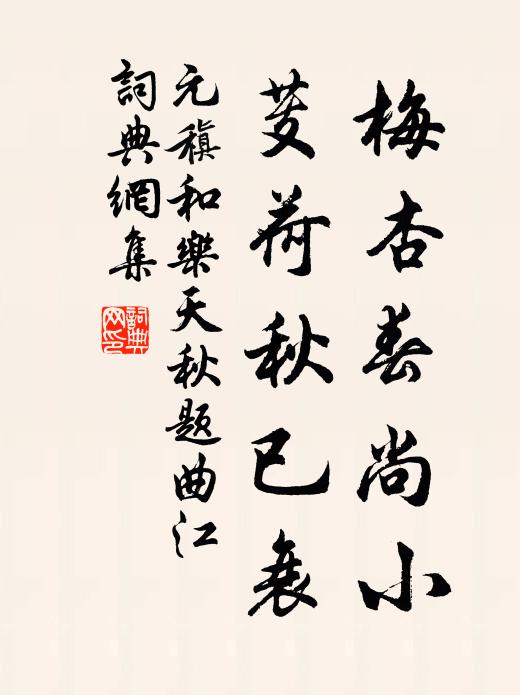 梅杏春尚小
芰荷秋已衰
元稹和樂天秋題曲江
詞典網集
詞典
网印